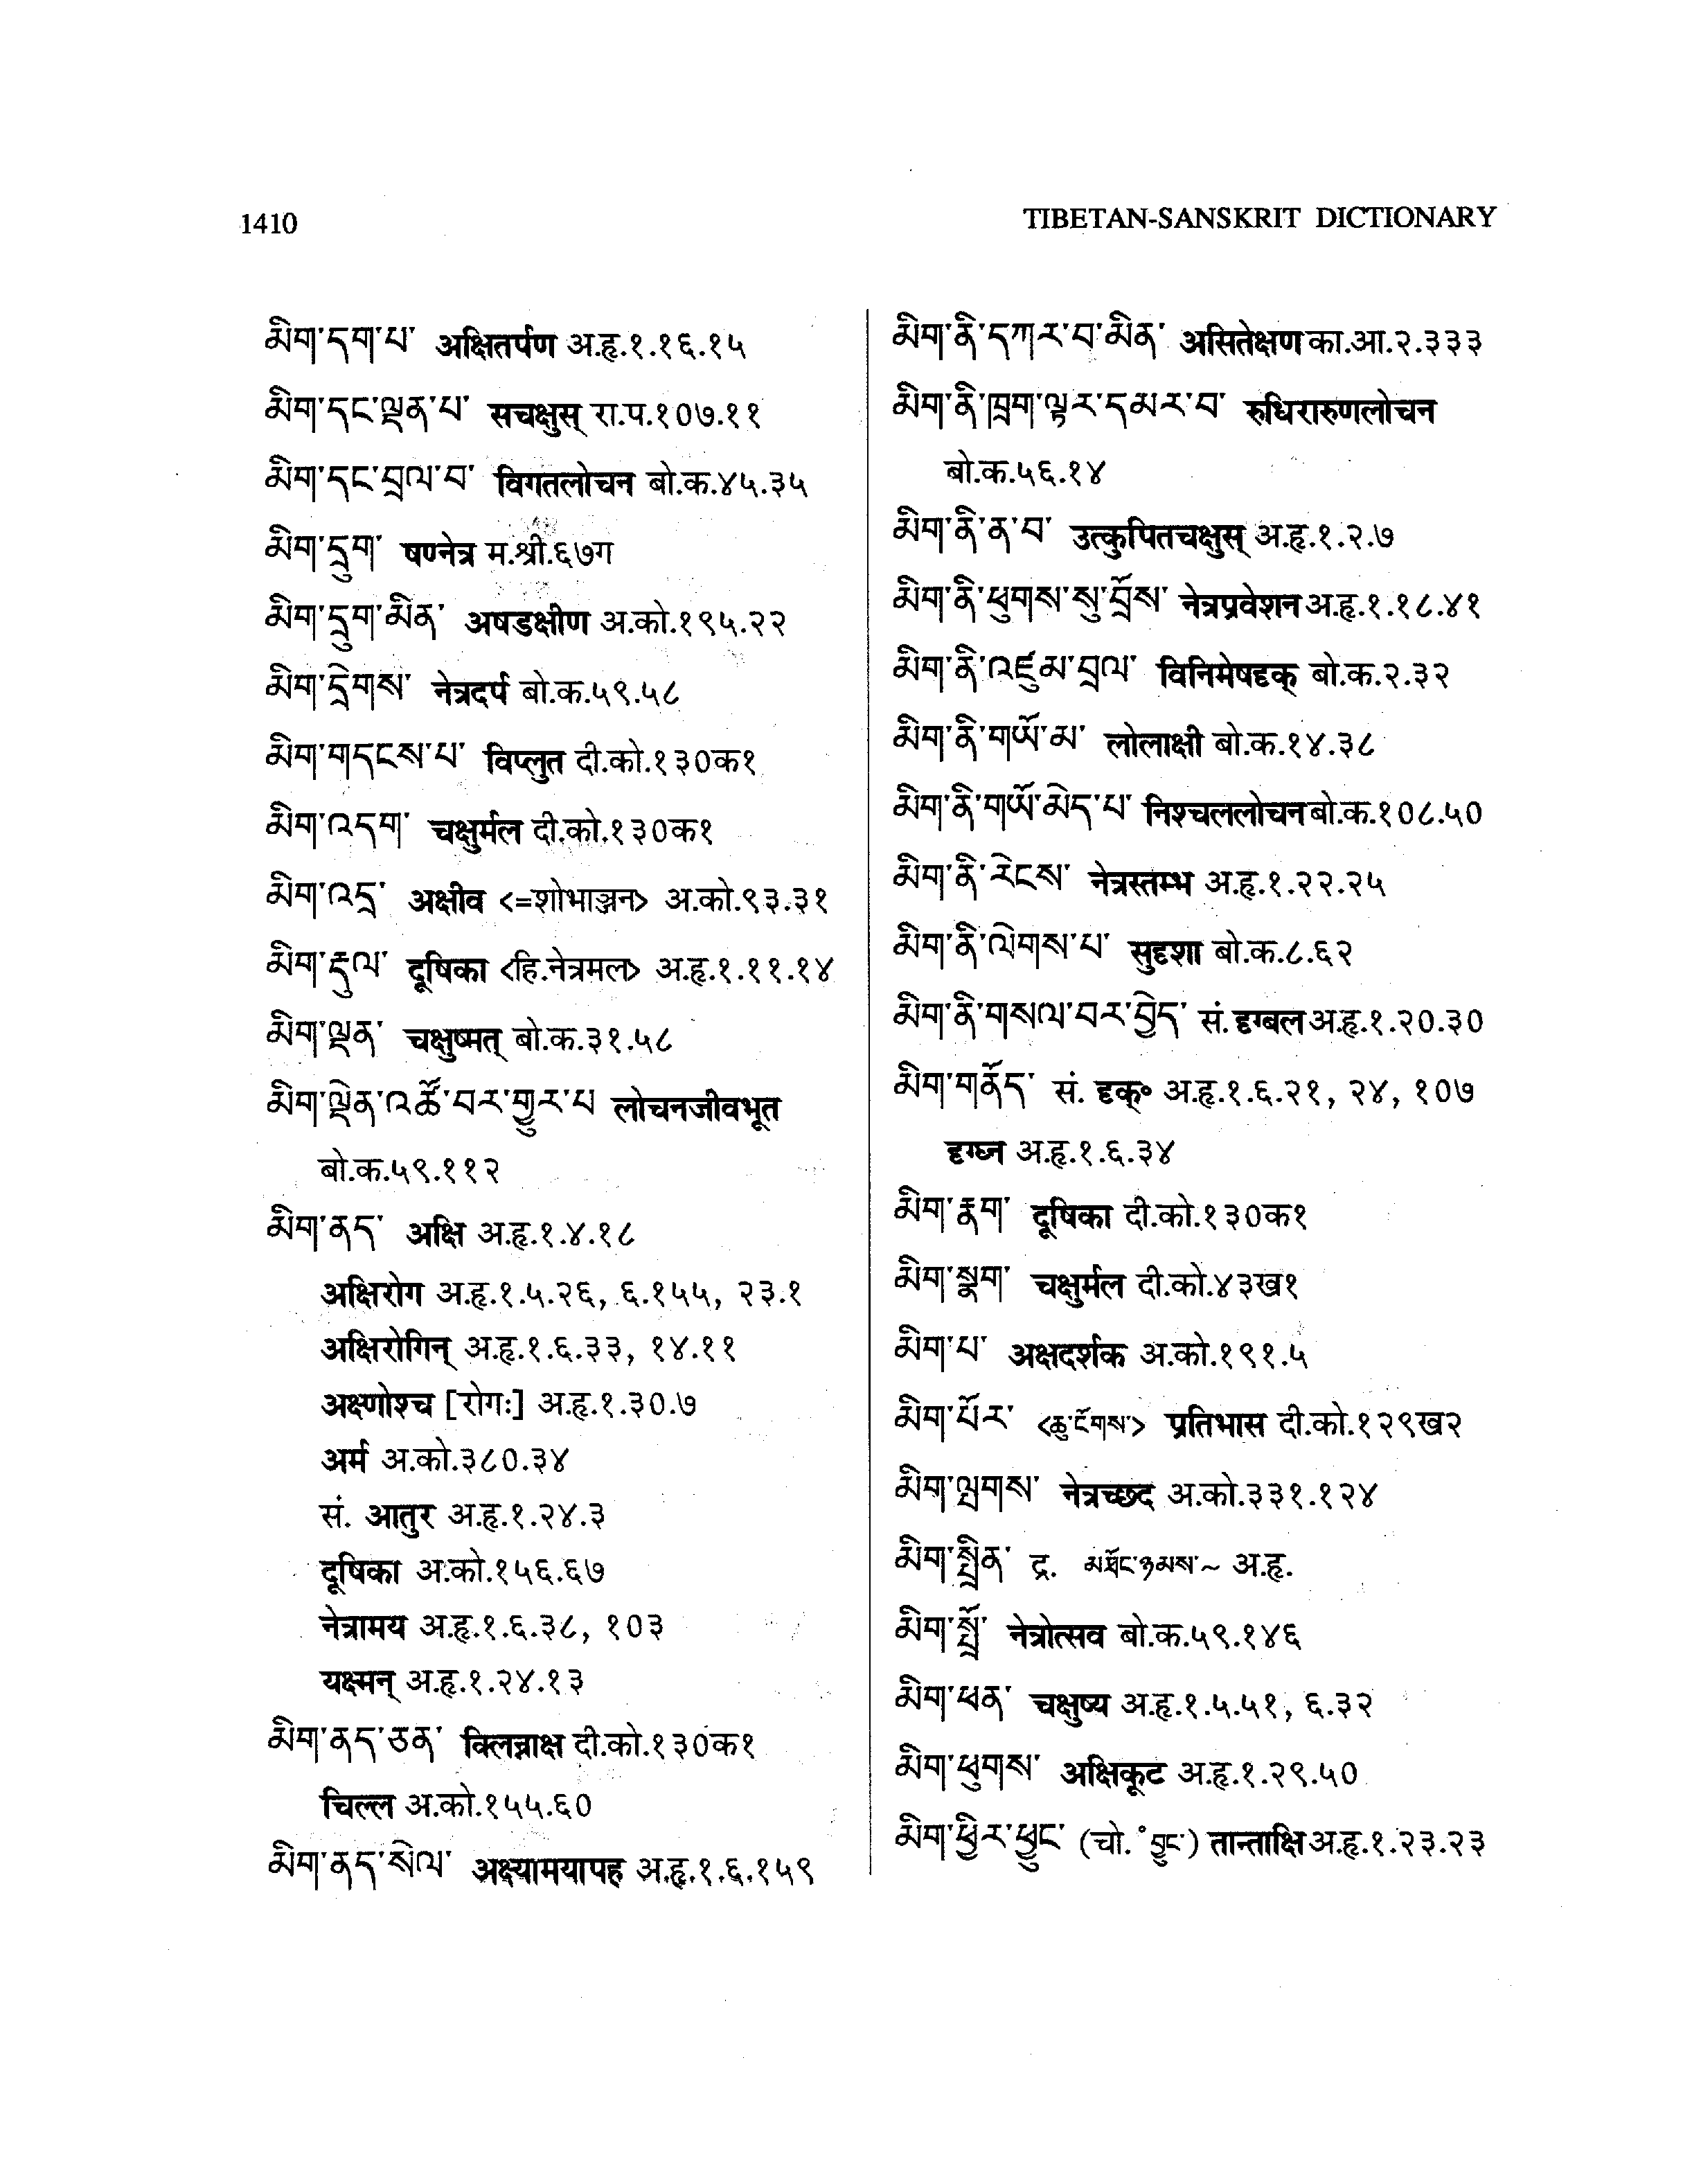 1410
TIBETAN-SANSKRIT DICTIONARY
མིག་དག་པ་ अक्षितर्पण अ.हृ.१.१६.१५
མིག་དང་ལྡན་པ་ सचक्षुस् रा.प.१०७.११
མིག་དང་བྲལ་བ་ विगतलोचन बो.क.४५.३५
མིག་དྲུག་ षण्नेत्र म.श्री.६७ग
མིག་དྲུག་མིན་ अषडक्षीण अ.को.१९५.२२
མིག་དྲེགས་ नेत्रदर्प बो.क.५९.५८
མིག་གདངས་པ་ विप्लुत दी.को.१३०क१
མིག་འདག་ चक्षुर्मल दी.को.१३०क१
མིག་འདྲ་ अक्षीव <=शोभाञ्जन> अ.को.९३.३१
མིག་རྡུལ་ दूषिका <हि.नेत्रमल> अ.हृ.१.११.१४
མིག་ལྡན་ चक्षुष्मत् बो.क.३१.५८
མིག་ལྡེན་འཚོ་བར་གྱུར་པ लोचनजीवभूत
बो.क.५९.११२
མིག་ནད་ अक्षि अ.हृ.१.४.१८
अक्षिरोग अ.हृ.१.५.२६, ६.१५५, २३.१
अक्षिरोगिन् अ.हृ.१.६.३३, १४.११
अक्ष्णोश्च [रोगः] अ.हृ.१.३०.७
अर्म अ.को.३८०.३४
सं. आतुर अ.हृ.१.२४.३
दूषिका अ.को.१५६.६७
नेत्रामय अ.हृ.१.६.३८, १०३
यक्ष्मन् अ.हृ.१.२४.१३
མིག་ནད་ཅན་ क्लिन्नाक्ष दी.को.१३०क१
चिल्ल अ.को.१५५.६०
མིག་ནད་སེལ་ अक्ष्यामयापह अ.हृ.१.६.१५९
མིག་ནི་དཀར་བ་མིན་ असितेक्षण का.आ.२.३३३
མིག་ནི་ཁྲག་ལྟར་དམར་བ་ रुधिरारुणलोचन
बो.क.५६.१४
མིག་ནི་ན་བ་ उत्कुपितचक्षुस् अ.हृ.१.२.७
མིག་ནི་ཕུགས་སུ་བྲོས་ नेत्रप्रवेशन अ.हृ.१.१८.४१
མིག་ནི་འཛུམ་བྲལ་ विनिमेषदृक् बो.क.२.३२
མིག་ནི་གཡོ་མ་ लोलाक्षी बो.क.१४.३८
མིག་ནི་གཡོ་མེད་པ་ निश्चललोचन बो.क.१०८.५०
མིག་ནི་རེངས་ नेत्रस्तम्भ अ.हृ.१.२२.२५
མིག་ནི་ལེགས་པ་ सुदृशा बो.क.८.६२
མིག་ནི་གསལ་བར་བྱེད་ सं. दृग्बल अ.हृ.१.२०.३०
མིག་གནོད་ सं. दृक्॰ अ.हृ.१.६.२१, २४, १०७
दृग्घ्न अ.हृ.१.६.३४
མིག་རྣག་ दूषिका दी.को.१३०क१
མིག་སྣག་ चक्षुर्मल दी.को.४३ख१
མིག་པ་ अक्षदर्शक अ.को.१९१.५
མིག་པོར་ <ཆུ་ངོགས་> प्रतिभास दी.को.१२९ख२
མིག་ལྤགས་ नेत्रच्छद अ.को.३३१.१२४
མིག་སྤྲིན་ द्र. མཐོང་ཉམས་~ अ.हृ.
མིག་སྤྲོ་ नेत्रोत्सव बो.क.५९.१४६
མིག་ཕན་ चक्षुष्य अ.हृ.१.५.५१, ६.३२
མིག་ཕུགས་ अक्षिकूट अ.हृ.१.२९.५०
མིག་ཕྱིར་ཕྱུང་ (चो.॰བྱུང་) तान्ताक्षि अ.हृ.१.२३.२३